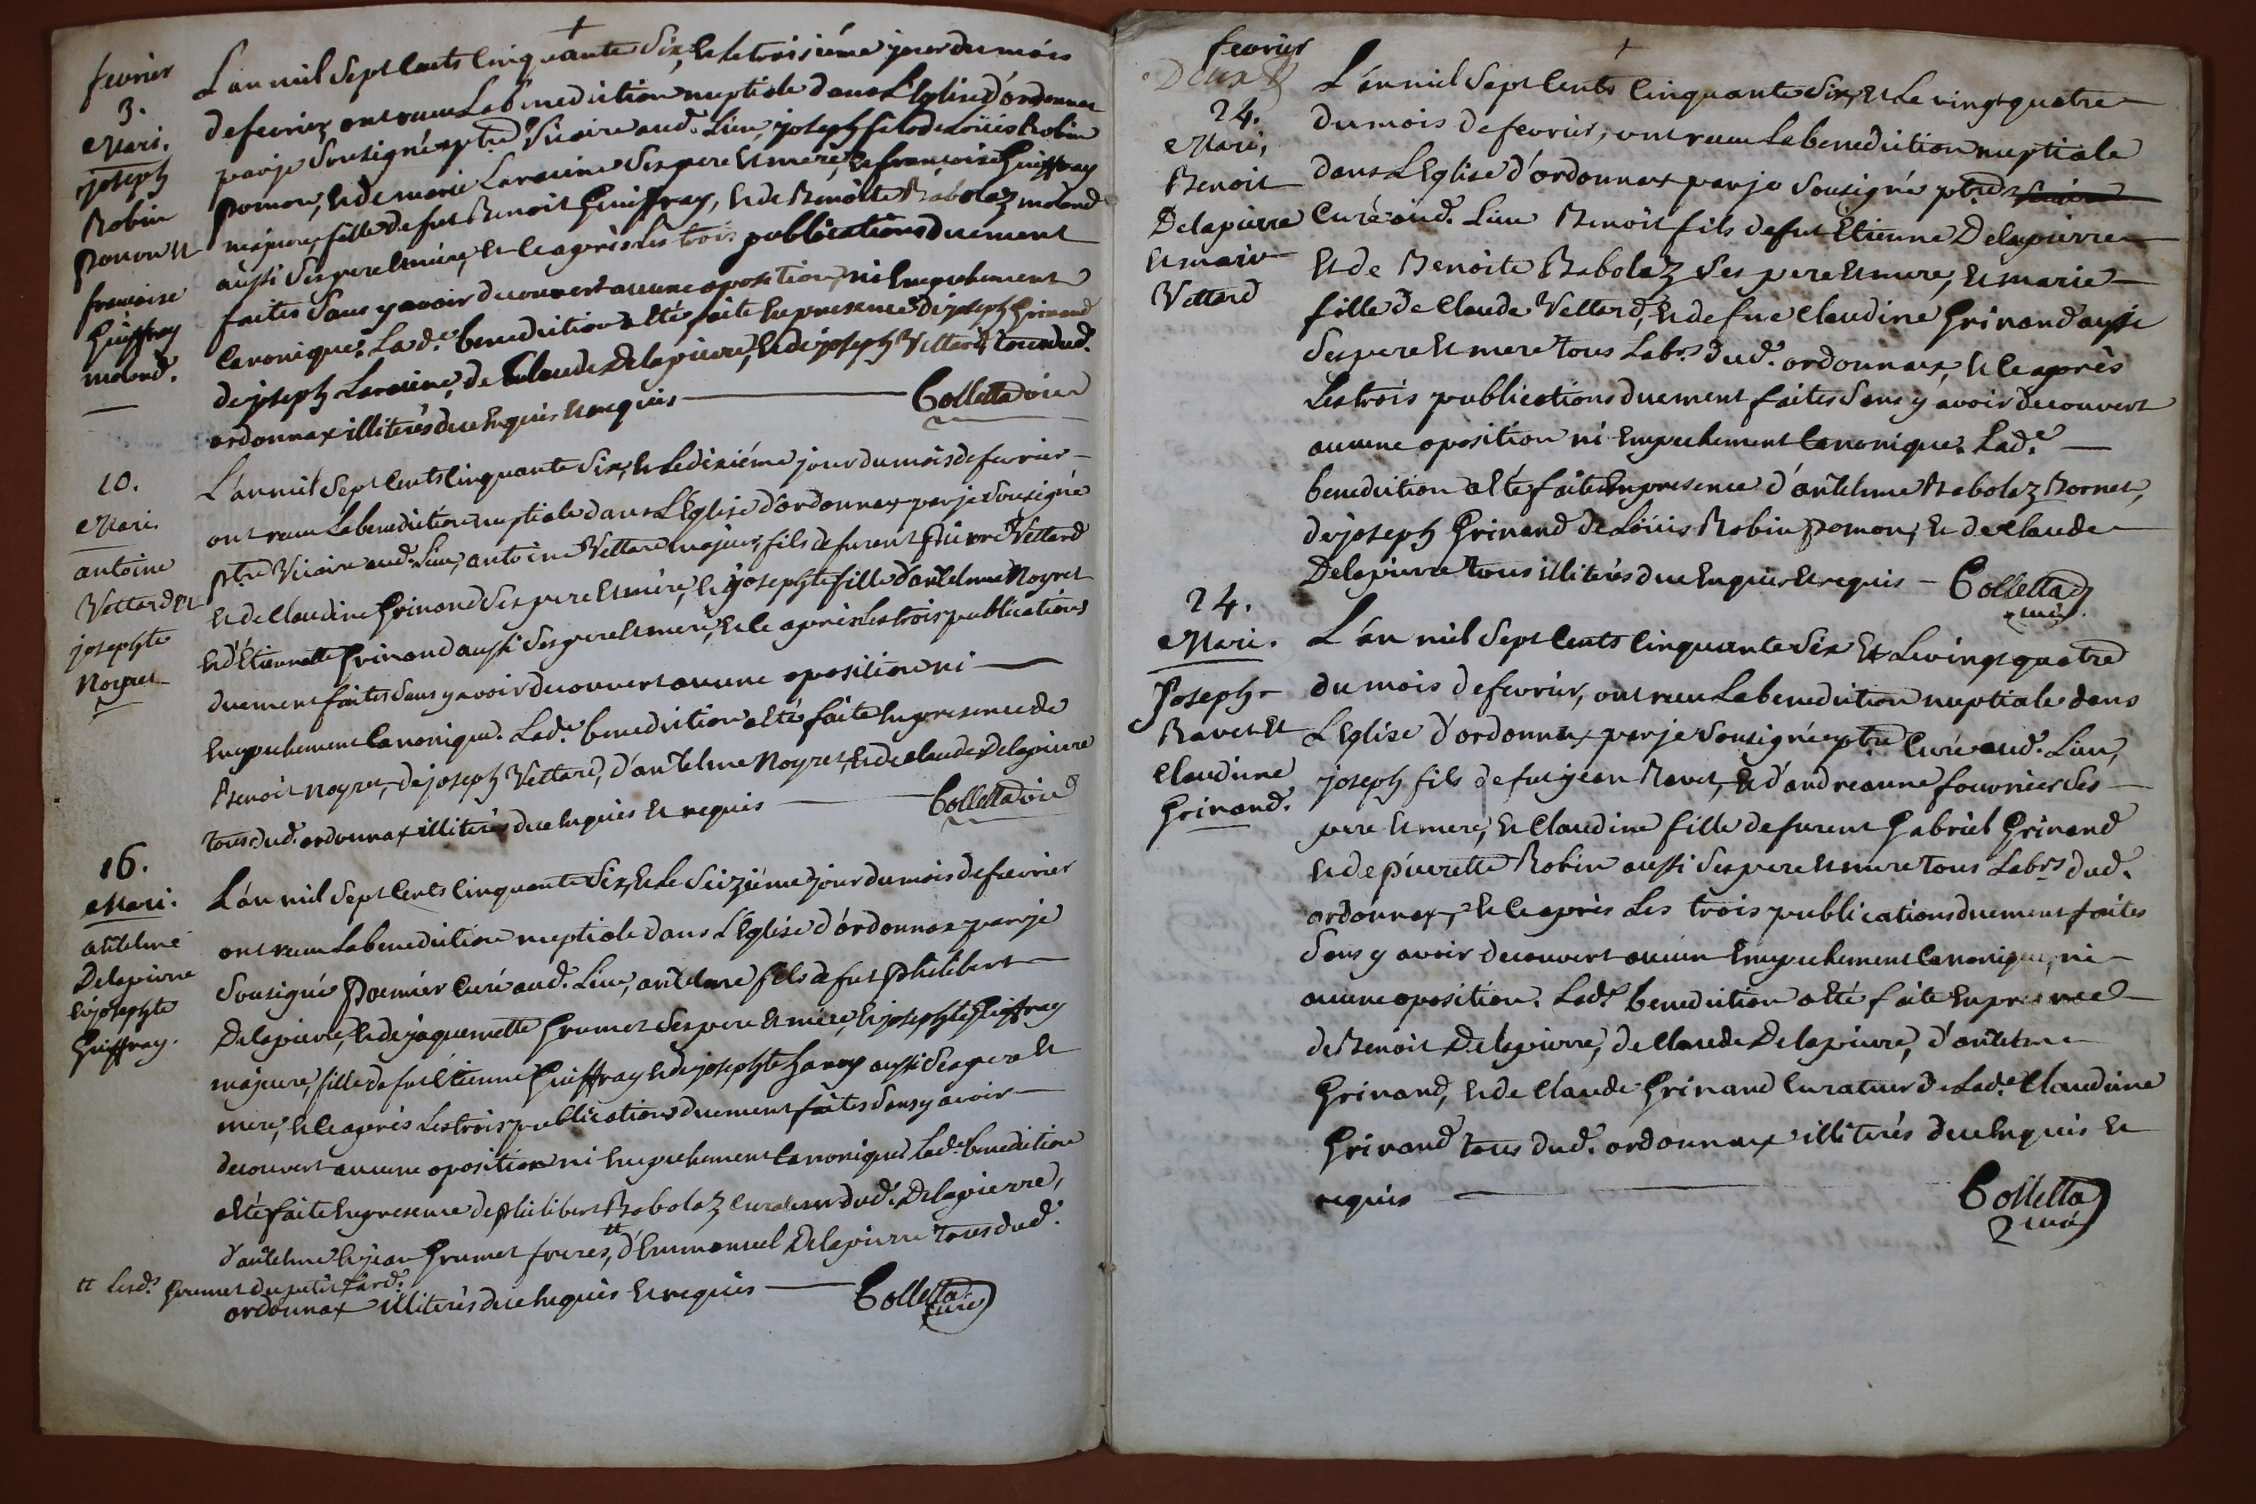 fevrier
3.
Mari.
joseph
Robin
Pomon et
françoise
Guiffray
molard.
L'an mil sept cents cinquante six, et le troisiéme jour du mois
de fevrier ont reçu la benediction nuptiale dans L'Eglise d'ordonnax
par je sousigné ptre. Vicaire aud. Lieu, joseph fils de Loüis Robin
Pomon, et de marie Laracine ses pere et mere, et françoise Guiffray
majeure, fille de fut Benoit Guiffray, et de Benoite Babolaz molard
aussi ses pere et mere, et ce après les trois publications duement
faites sans y avoir decouvert aucune oposition, ni Empechement
Canonique. La d.e benediction a été faite En presence de joseph Grinand
de joseph Laracine, de Claude Delapierre, et de joseph Vettard, tous dud.
ordonnax illiterés de ce Enquis et requis Colletta vic.
10.
Mari.
antoine
Vettard et
josephte
Noyret
L'an mil sept cents cinquante six, et le dixiéme jour du mois de fevrier
ont reçu la benediction nuptiale dans L'Eglise d'ordonnax par je sousigné
ptre Vicaire aud. Lieu, antoine Vettard majeur, fils de furent Pierre Vettard
et de Claudine Grinand ses pere et mere, et josephte fille d'antelme Noyret
et d'Etiennette Grinand aussi ses pere et mere, et ce après les trois publications
duement faites sans y avoir decouvert aucune oposition ni
Empechement Canonique. Lad.e benediction a été faite En presence de
Benoit Noyret, de joseph Vettard, d'antelme Noyret, et de claude Delapierre
tous dud. ordonnax illiterés de ce Enquis et requis Colletta vic.
16.
Mari.
antelme
Delapierre
et josephte
Guiffray.
L'an mil sept cents cinquante six, et le seiziéme jour du mois de fevrier
ont reçu la benediction nuptiale dans L'Eglise d'ordonnax par je
sousigné Premier Curé aud. Lieu, antelme fils de fut Philibert
Delapierre, et de jaquemette Grumet ses pere et mere, et josephte Guiffray
majeure, fille de fut Etienne Guiffray et de josephte aussi ses pere et
mere, et ce après les trois publications duement faites sans y avoir
decouvert aucune oposition ni Empechement Canonique. Lad.e benediction
a été faite En presence de philibert Babolaz curateur dud. Delapierre,
d'antelme et jean Grumet freres, # d'Emmanuel Delapierre tous dud.
# Lesd.s Grumet du petit
ordonnax illiterés de ce Enquis et requis Colletta
curé
fevrier
24.
Mari,
Benoit
Delapierre
et marie
Vettard
L'an mil sept cents cinquante six, et Le vingt quatre
du mois de fevrier, ont reçu la benediction nuptiale
dans L'Eglise d'ordonnax par je sousigné ptre
Curé aud. Lieu Benoit fils de fut Etienne Delapierre
et de Benoite Babolaz ses pere et mere, et marie
fille de Claude Vettard, et de fue Claudine Grinand aussi
ses pere et mere tous Labrs. dud. ordonnax, et ce après
Les trois publications duement faites sans y avoir decouvert
aucune oposition ni Empechement Canonique. Lad.e
benediction a été faite En presence d'antelme Babolaz Bornet,
de joseph Grinand de Loüis Robin Pomon, et de Claude
Delapierre tous illiterés de ce Enquis et requis Colletta
curé.
24.
Mari.
Joseph
Ravet et
Claudine
Grinand.
L'an mil sept cents cinquante six et Le vingt quatre
du mois de fevrier, ont reçu la benediction nuptiale dans
L'Eglise d'ordonnax par je sousigné ptre Curé aud. Lieu,
joseph fils de fut jean Ravet, et d'andreanne fouvrier ses
pere et mere, et Claudine fille de furent Gabriel Grinand
et de Pierrette Robin aussi ses pere et mere tous Labrs dud.
ordonnax, et ce après Les trois publications duement faites
sans y avoir decouvert aucun Empechement Canonique, ni
aucune oposition. Lad.e benediction a été faite En presence
de Benoit Delapierre, de Claude Delapierre, d'antelme
Grinand, et de Claude Grinand Curateur de Lad.e Claudine
Grinand tous dud. ordonnax illiterés de ce Enquis et
requis Colletta
curé